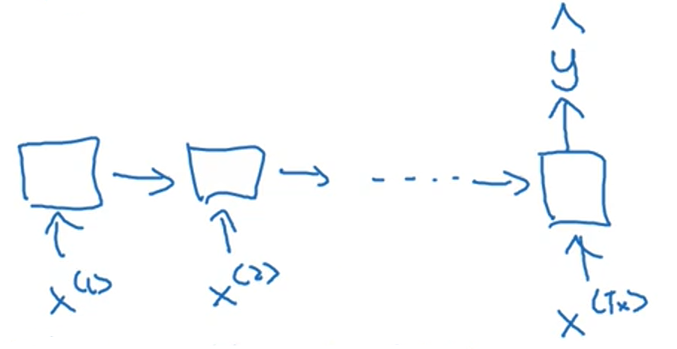 ŷ
x⟨1⟩
x⟨2⟩
x⟨Tx⟩